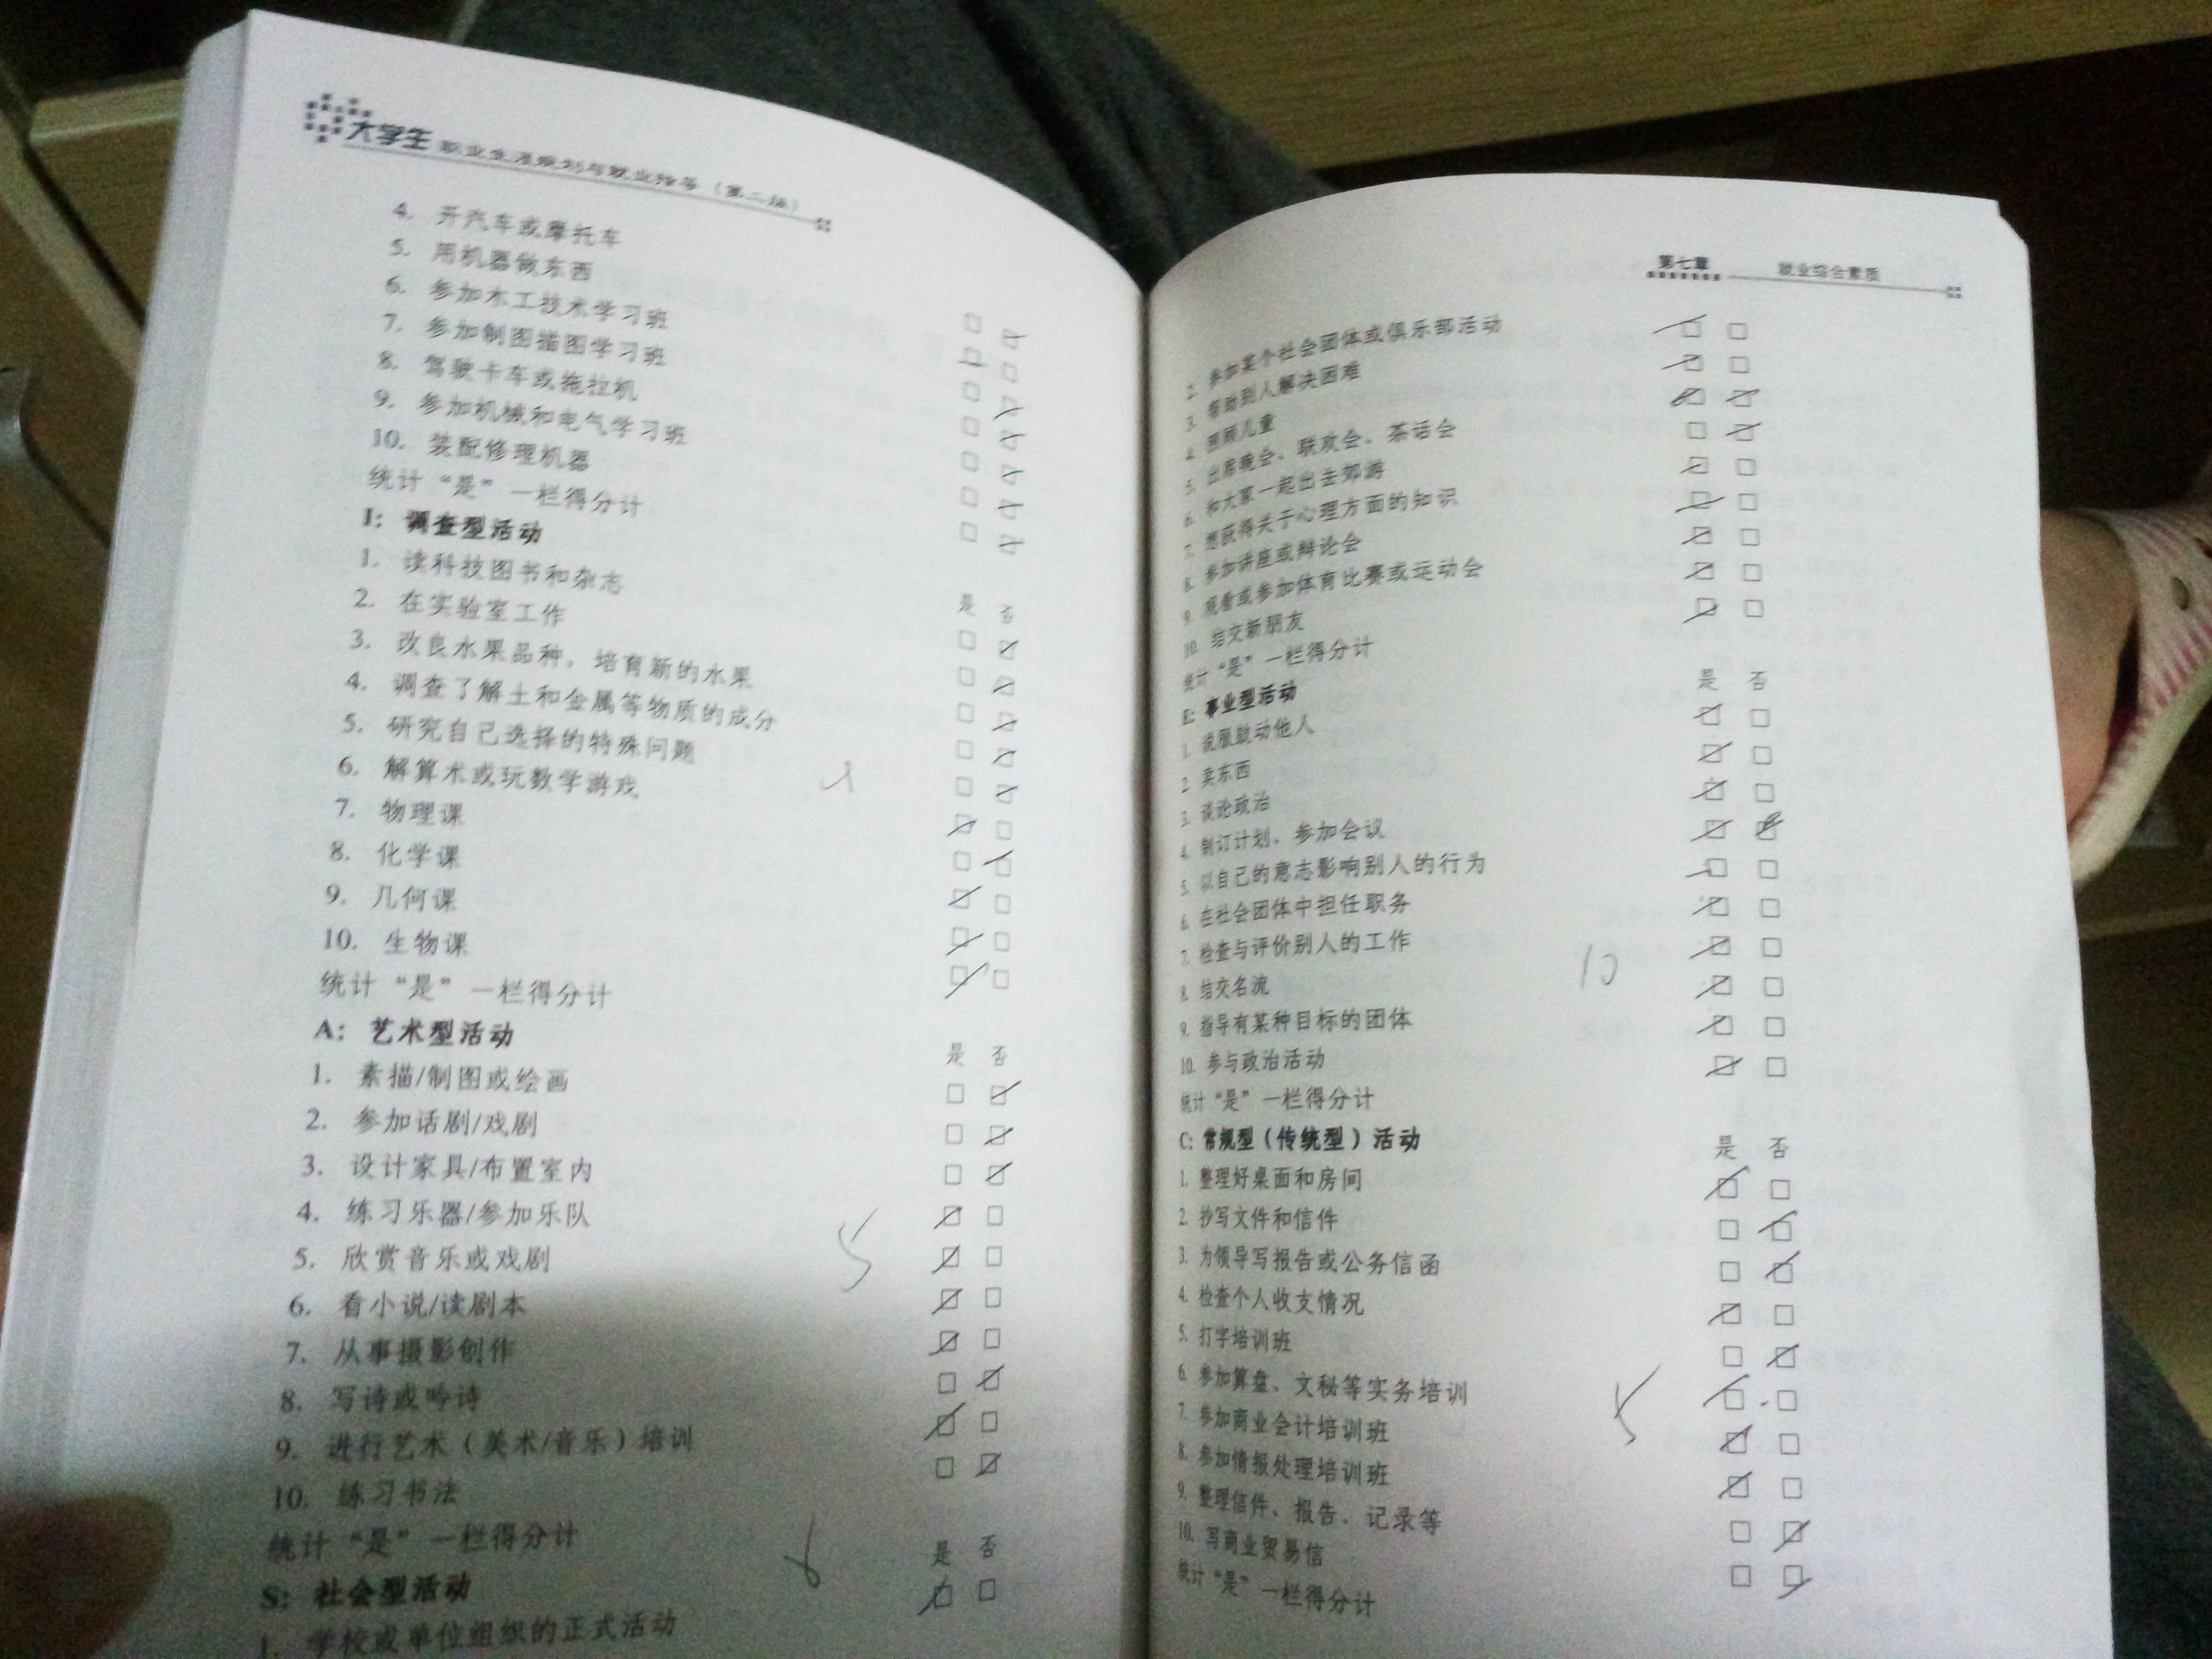 大学生 职业生涯规划与就业指导（第二版）
4. 开汽车或摩托车
5. 用机器做东西
6. 参加木工技术学习班
7. 参加制图描图学习班
8. 驾驶卡车或拖拉机
9. 参加机械和电气学习班
10. 装配修理机器
统计“是”一栏得分计
I：调查型活动
是 否
1. 读科技图书和杂志
2. 在实验室工作
3. 改良水果品种，培育新的水果
4. 调查了解土和金属等物质的成分
5. 研究自己选择的特殊问题
6. 解算术或玩数学游戏
7. 物理课
8. 化学课
9. 几何课
10. 生物课
统计“是”一栏得分计
A：艺术型活动
是 否
1. 素描/制图或绘画
2. 参加话剧/戏剧
3. 设计家具/布置室内
4. 练习乐器/参加乐队
5. 欣赏音乐或戏剧
5
6. 看小说/读剧本
7. 从事摄影创作
8. 写诗或吟诗
9. 进行艺术（美术/音乐）培训
10. 练习书法
统计“是”一栏得分计
S：社会型活动
是 否
1. 学校或单位组织的正式活动
第七章 就业综合素质
2. 参加某个社会团体或俱乐部活动
3. 帮助别人解决困难
4. 照顾儿童
5. 出席晚会、联欢会、茶话会
6. 和大家一起出去郊游
7. 想获得关于心理方面的知识
8. 参加讲座或辩论会
9. 观看或参加体育比赛或运动会
10. 结交新朋友
统计“是”一栏得分计
E：事业型活动
是 否
1. 说服鼓动他人
2. 卖东西
3. 谈论政治
4. 制订计划、参加会议
5. 以自己的意志影响别人的行为
6. 在社会团体中担任职务
7. 检查与评价别人的工作
10
8. 结交名流
9. 指导有某种目标的团体
10. 参与政治活动
统计“是”一栏得分计
C：常规型（传统型）活动
是 否
1. 整理好桌面和房间
2. 抄写文件和信件
3. 为领导写报告或公务信函
4. 检查个人收支情况
5. 打字培训班
6. 参加算盘、文秘等实务培训
5
7. 参加商业会计培训班
8. 参加情报处理培训班
9. 整理信件、报告、记录等
10. 写商业贸易信
统计“是”一栏得分计